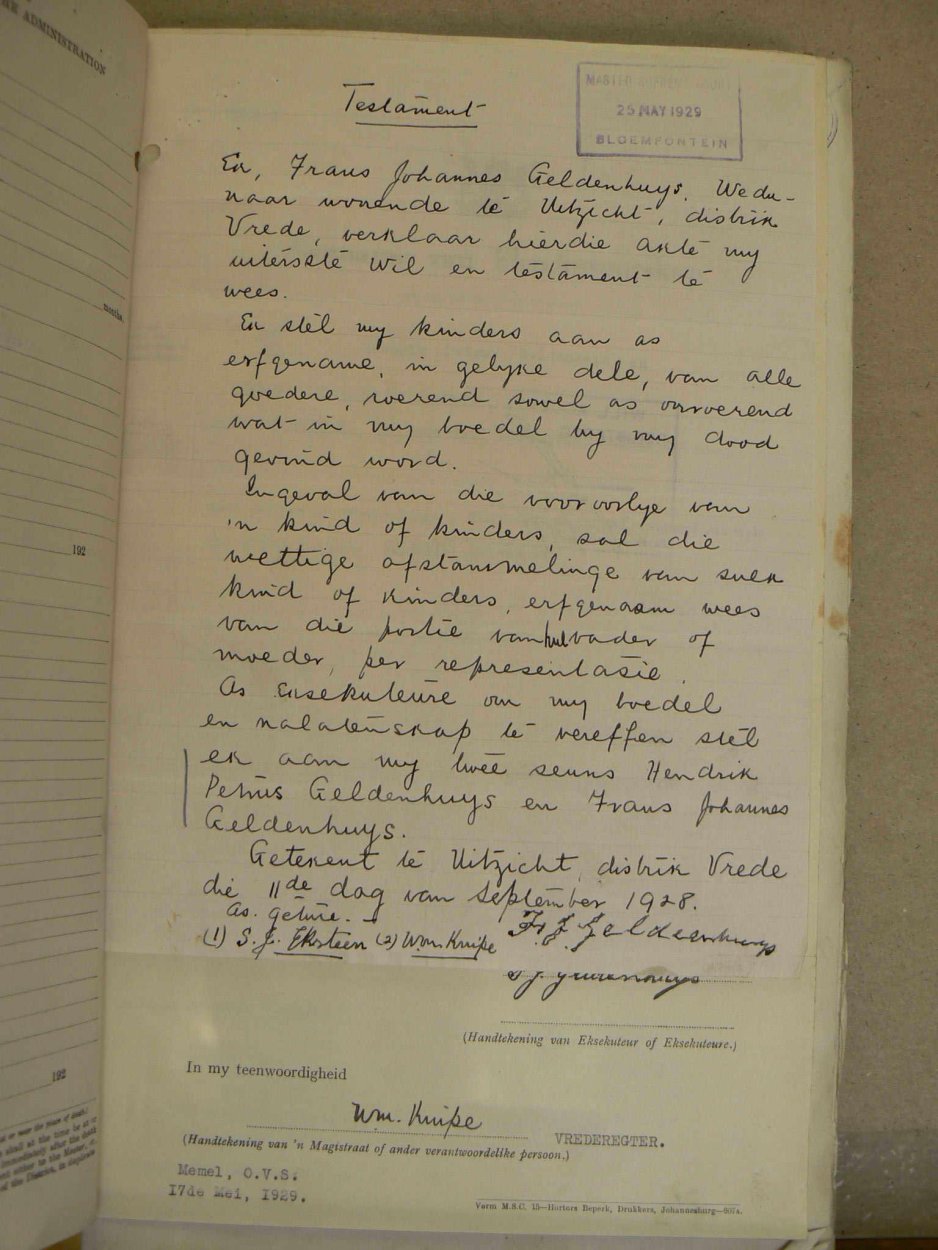 THE ADMINISTRATION
months.
192
192
MASTER SUPREME COURT
25 MAY 1929
BLOEMFONTEIN
Testament
Ek, Frans Johannes Geldenhuys, Wedu-
naar wonende te Uitzicht, distrik
Vrede, verklaar hierdie akte my
uiterste wil en testament te
wees.
Ek stel my kinders aan as
erfgename, in gelyke dele, van alle
goedere, roerend sowel as onroerend
wat in my boedel by my dood
gevind word.
Ingeval van die vooroorlye van
'n kind of kinders, sal die
wettige afstammelinge van suek
kind of kinders, erfgenaam wees
van die portie van hul vader of
moeder, per representasie.
As Eksekuteure om my boedel
en nalatenskap te vereffen stel
ek aan my twee seuns Hendrik
Petrus Geldenhuys en Frans Johannes
Geldenhuys.
Getekent te Uitzicht, distrik Vrede
die 11de dag van September 1928.
As. getuie.
(1) S. J. Eksteen (2) Wm. Knipe F. J. Geldenhuys
(Handtekening van Eksekuteur of Eksekuteure.)
In my teenwoordigheid
Wm. Knipe
VREDEREGTER.
(Handtekening van 'n Magistraat of ander verantwoordelike persoon.)
Memel, O.V.S.
17de Mei, 1929.
Vorm M.S.C. 15—Hortors Beperk, Drukkers, Johannesburg—607A.